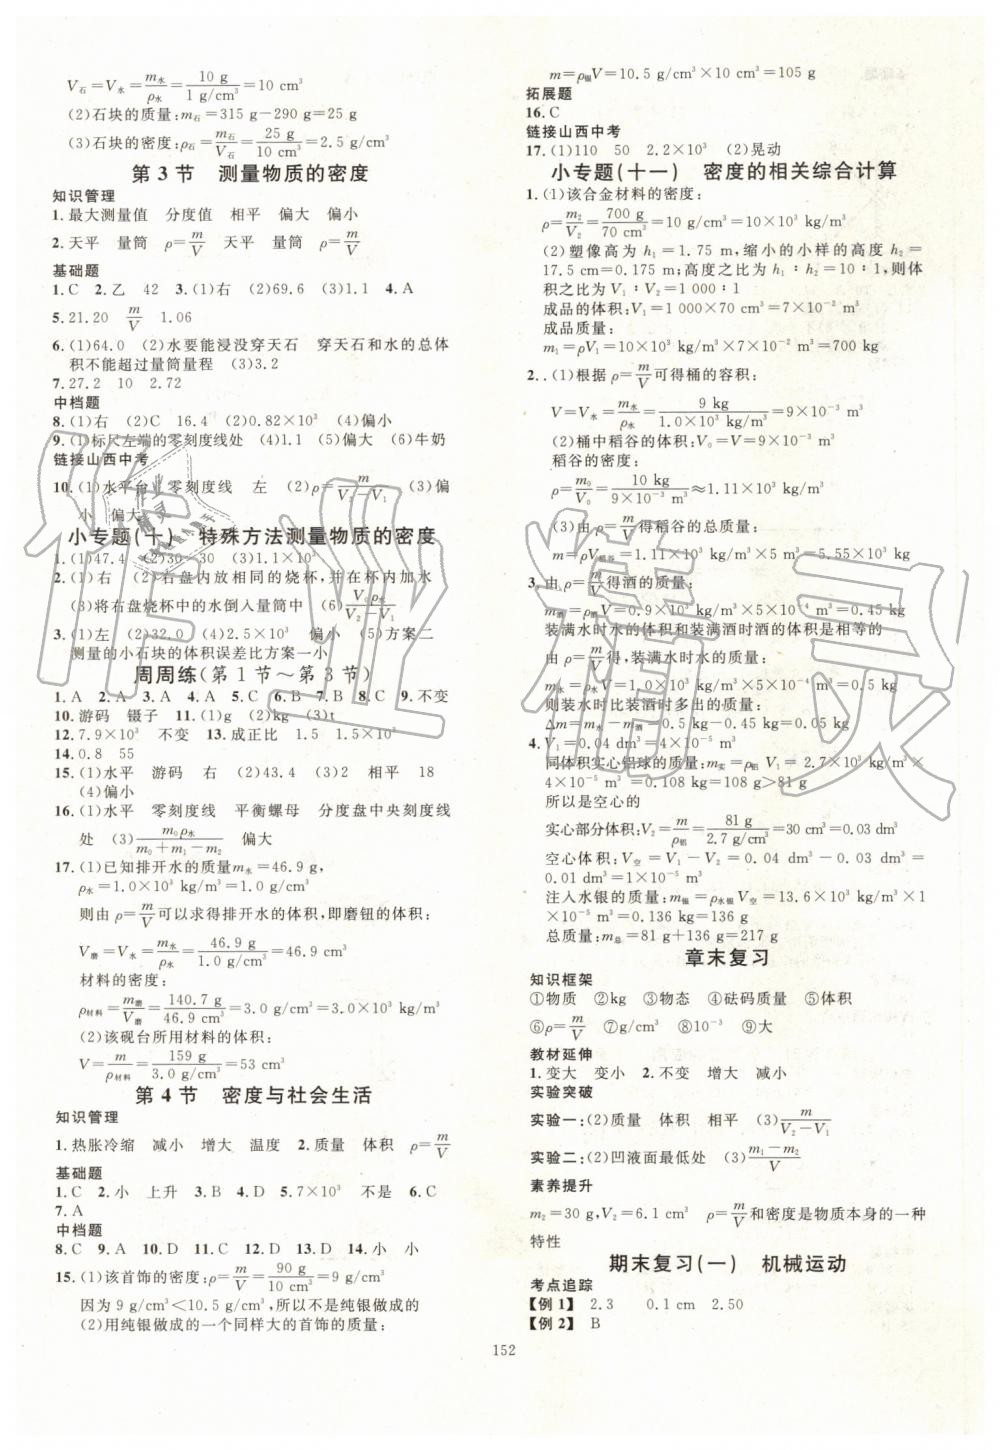 V石=V水=m水/ρ水=10 g/1 g/cm³=10 cm³
(2)石块的质量:m石=315 g-290 g=25 g
(3)石块的密度:ρ石=m石/V石=25 g/10 cm³=2.5 g/cm³
第3节 测量物质的密度
知识管理
1.最大测量值 分度值 相平 偏大 偏小
2.天平 量筒 ρ=m/V 天平 量筒 ρ=m/V
基础题
1.C 2.乙 42 3.(1)右 (2)69.6 (3)1.1 4.A
5.21.20 m/V 1.06
6.(1)64.0 (2)水要能浸没穿天石 穿天石和水的总体
积不能超过量筒量程 (3)3.2
7.27.2 10 2.72
中档题
8.(1)右 (2)C 16.4 (2)0.82×10³ (4)偏小
9.(1)标尺左端的零刻度线处 (4)1.1 (5)偏大 (6)牛奶
链接山西中考
10.(1)水平台 零刻度线 左 (2)ρ=m/V₂-V₁ (3)偏
小 偏大
小专题(十) 特殊方法测量物质的密度
1.(1)47.4 (2)30 30 (3)1.1×10³
2.(1)右 (2)右盘内放相同的烧杯,并在杯内加水
(3)将右盘烧杯中的水倒入量筒中 (6)V₀ρ水/V₂-V₁
3.(1)左 (2)32.0 (4)2.5×10³ 偏小 (5)方案二
测量的小石块的体积误差比方案一小
周周练(第1节~第3节)
1.A 2.A 3.A 4.A 5.D 6.B 7.B 8.C 9.不变
10.游码 镊子 11.(1)g (2)kg (3)t
12.7.9×10³ 不变 13.成正比 1.5 1.5×10³
14.0.8 55
15.(1)水平 游码 右 (2)43.4 (3)2 相平 18
(4)偏小
16.(1)水平 零刻度线 平衡螺母 分度盘中央刻度线
处 (3)m₀ρ水/m₀+m₁-m₂ 偏大
17.(1)已知排开水的质量m水=46.9 g,
ρ水=1.0×10³ kg/m³=1.0 g/cm³
则由ρ=m/V可以求得排开水的体积,即磨钮的体积:
V磨=V水=m水/ρ水=46.9 g/1.0 g/cm³=46.9 cm³
材料的密度:
ρ材料=m磨/V磨=140.7 g/46.9 cm³=3.0 g/cm³=3.0×10³ kg/m³
(2)该砚台所用材料的体积:
V=m/ρ材料=159 g/3.0 g/cm³=53 cm³
第4节 密度与社会生活
知识管理
1.热胀冷缩 减小 增大 温度 2.质量 体积 ρ=m/V
基础题
1.C 2.小 上升 3.B 4.D 5.7×10³ 不是 6.C
7.A
中档题
8.C 9.A 10.D 11.D 12.C 13.D 14.小 小
15.(1)该首饰的密度:ρ=m/V=90 g/10 cm³=9 g/cm³
因为9 g/cm³<10.5 g/cm³,所以不是纯银做成的
(2)用纯银做成的一个同样大的首饰的质量:
m=ρ银V=10.5 g/cm³×10 cm³=105 g
拓展题
16.C
链接山西中考
17.(1)110 50 2.2×10³ (2)晃动
小专题(十一) 密度的相关综合计算
1.(1)该合金材料的密度:
ρ=m₂/V₂=700 g/70 cm³=10 g/cm³=10×10³ kg/m³
(2)塑像高为h₁=1.75 m,缩小的小样的高度h₂=
17.5 cm=0.175 m;高度之比为h₁∶h₂=10∶1,则体
积之比为V₁∶V₂=1 000∶1
成品的体积:V₁=1 000×70 cm³=7×10⁻² m³
成品质量:
m₁=ρV₁=10×10³ kg/m³×7×10⁻² m³=700 kg
2..(1)根据ρ=m/V可得桶的容积:
V=V水=m水/ρ水=9 kg/1.0×10³ kg/m³=9×10⁻³ m³
(2)桶中稻谷的体积:V₀=V=9×10⁻³ m³
稻谷的密度:
ρ=m₀/V₀=10 kg/9×10⁻³ m³≈1.11×10³ kg/m³
(3)由ρ=m/V得稻谷的总质量:
m=ρV稻谷=1.11×10³ kg/m³×5 m³=5.55×10³ kg
3.由ρ=m/V得酒的质量:
m酒=ρ酒V=0.9×10³ kg/m³×5×10⁻⁴ m³=0.45 kg
装满水时水的体积和装满酒时酒的体积是相等的
由ρ=m/V得,装满水时水的质量:
m水=ρ水V=1.0×10³ kg/m³×5×10⁻⁴ m³=0.5 kg
则装水时比装酒时多出的质量:
Δm=m水-m酒=0.5 kg-0.45 kg=0.05 kg
4.V₁=0.04 dm³=4×10⁻⁵ m³
同体积实心铝球的质量:m实=ρ铝V₁=2.7×10³ kg/m³×
4×10⁻⁵ m³=0.108 kg=108 g>81 g
所以是空心的
实心部分体积:V₂=m/ρ铝=81 g/2.7 g/cm³=30 cm³=0.03 dm³
空心体积:V空=V₁-V₂=0.04 dm³-0.03 dm³=
0.01 dm³=1×10⁻⁵ m³
注入水银的质量:m银=ρ水银V空=13.6×10³ kg/m³×1
×10⁻⁵ m³=0.136 kg=136 g
总质量:m总=81 g+136 g=217 g
章末复习
知识框架
①物质 ②kg ③物态 ④砝码质量 ⑤体积
⑥ρ=m/V ⑦g/cm³ ⑧10⁻³ ⑨大
教材延伸
1.变大 变小 2.不变 增大 减小
实验突破
实验一:(2)质量 体积 相平 (3)m/V₂-V₁
实验二:(2)凹液面最低处 (3)m₁-m₂/V
素养提升
m₂=30 g,V₂=6.1 cm³ ρ=m/V和密度是物质本身的一种
特性
期末复习(一) 机械运动
考点追踪
【例1】 2.3 0.1 cm 2.50
【例2】 B
152
作业精灵